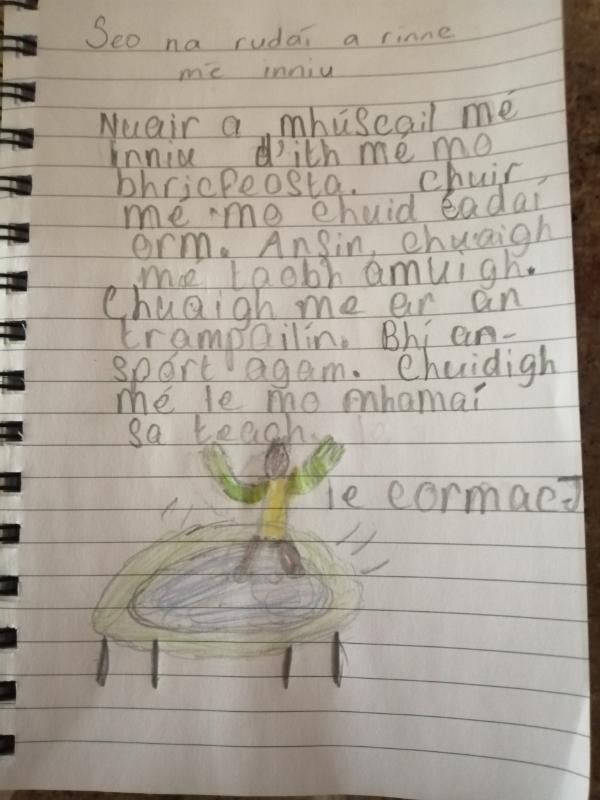 Seo na rudaí a rinne
mé inniu
Nuair a mhúscail mé
inniu d'ith mé mo
bhricfeosta. Chuir
mé mo chuid éadaí
orm. Ansin chuaigh
mé taobh amuigh.
Chuaigh me ar an
trampailín. Bhí an-
spórt agam. Chuidigh
mé le mo mhamaí
sa teach.
le cormac J